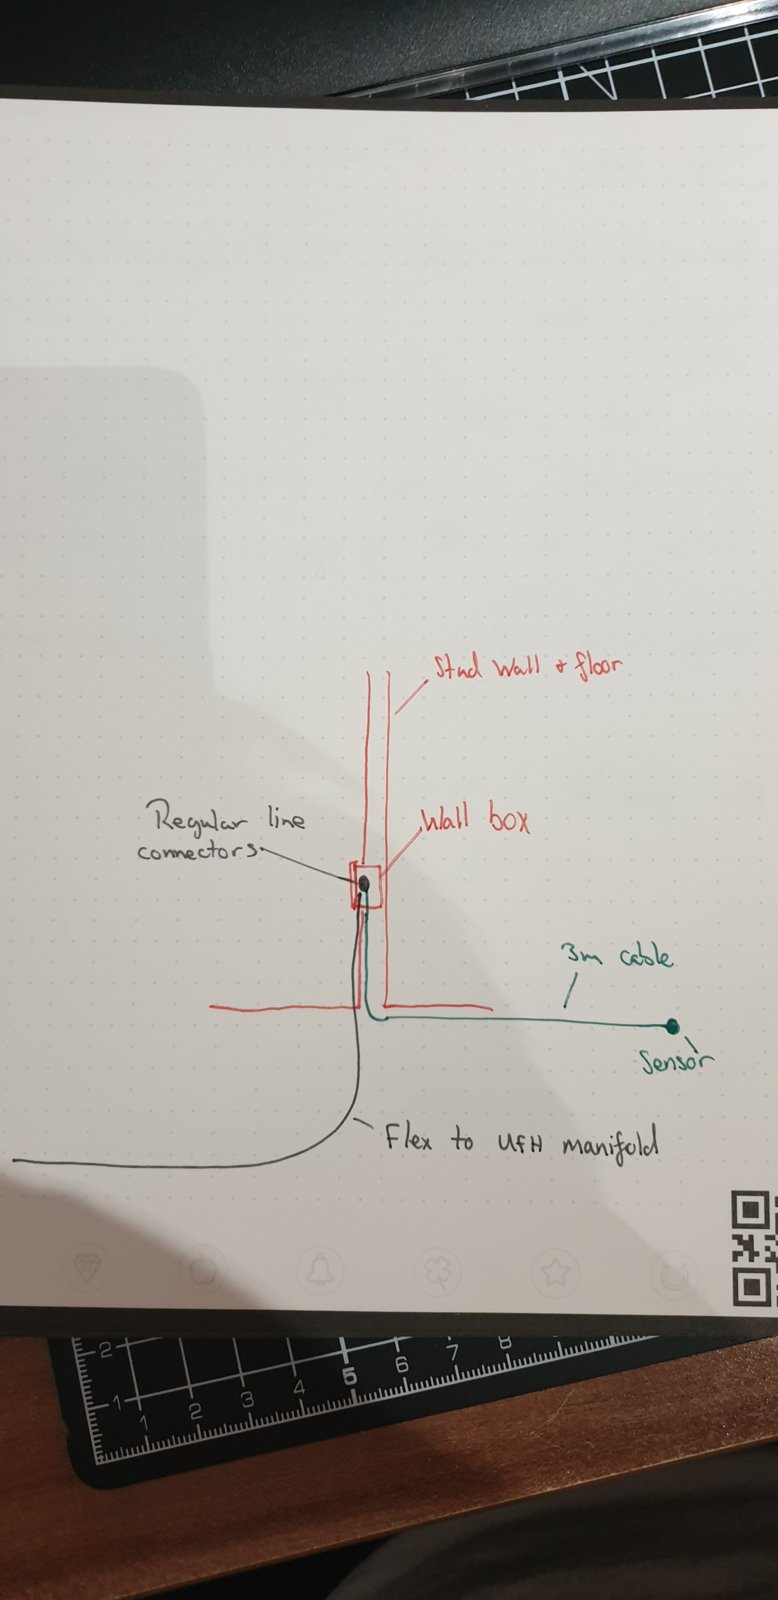 Stud wall & floor
Regular line
connectors
Wall box
3m cable
Sensor
Flex to UFH manifold
2
1
1 2 3 4 5 6 7 8